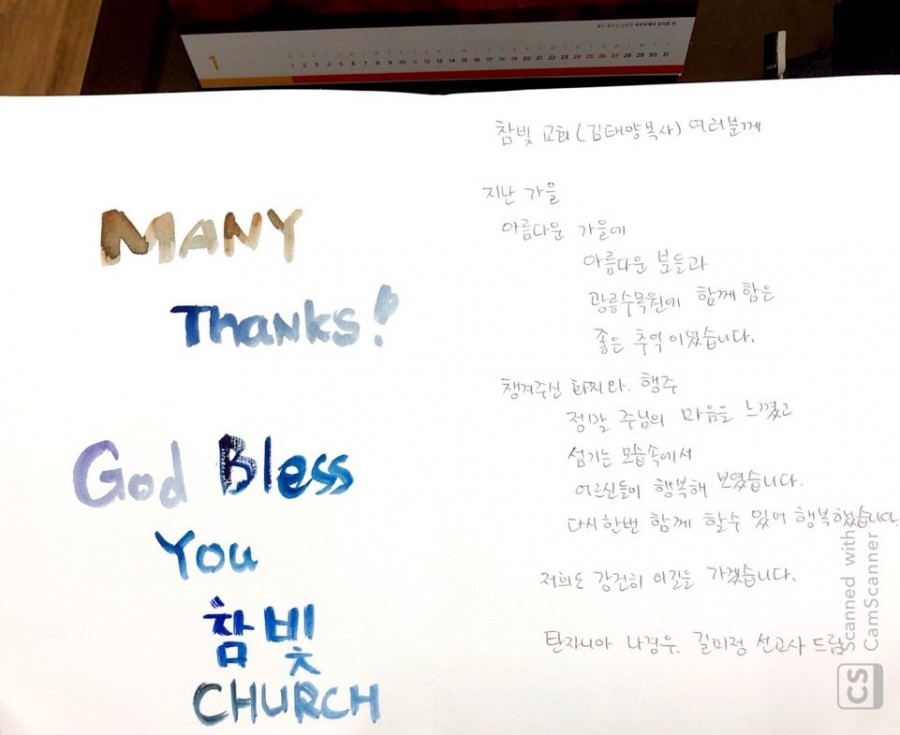 1
1 2 3 4 5 6 7 8 9 10 11 12 13 14 15 16 17 18 19 20 21 22 23 24 25 26 27 28 29 30 31
MANY
Thanks!
God Bless
You
참빛
CHURCH
참빛 교회(김태양목사) 여러분께
지난 가을
아름다운 가을에
아름다운 분들과
광릉수목원에 함께 함은
좋은 추억이었습니다.
챙겨주신 행주
정말 주님의 마음을 느꼈고
섬기는 모습속에서
어르신들이 행복해 보였습니다.
다시한번 함께 할수 있어 행복했습니다.
저희도 강건히 이길을 가겠습니다.
탄자니아 나경수, 길미정 선교사 드림
Scanned with
CamScanner
CS